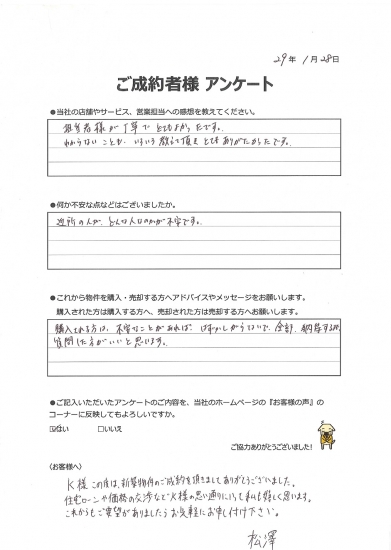 29年 1月 28日
ご成約者様 アンケート
●当社の店舗やサービス、営業担当への感想を教えてください。
担当者様が丁寧で とてもよかったです。
わからないことも、いろいろ教えて頂き とても ありがたかったです。
●何か不安な点などはございましたか。
近所の人が、どんな人なのかが不安です。
●これから物件を購入・売却する方へアドバイスやメッセージをお願いします。
購入された方は購入する方へ、売却された方は売却する方へお願いします。
購入される方は、不安なことがあれば、はずかしがらないで、全部、納得するまで
質問した方がいいと思います。
●ご記入いただいたアンケートのご内容を、当社のホームページの『お客様の声』の
コーナーに反映してもよろしいですか。
☑はい □いいえ
ご協力ありがとうございました!
〈お客様へ〉
K様 この度は、新築物件のご成約を頂きまして ありがとうございました。
住宅ローンや価格の交渉など K様の思い通りにいって私も嬉しく思います。
これからもご要望がありましたら お気軽にお申し付け下さい。
松澤